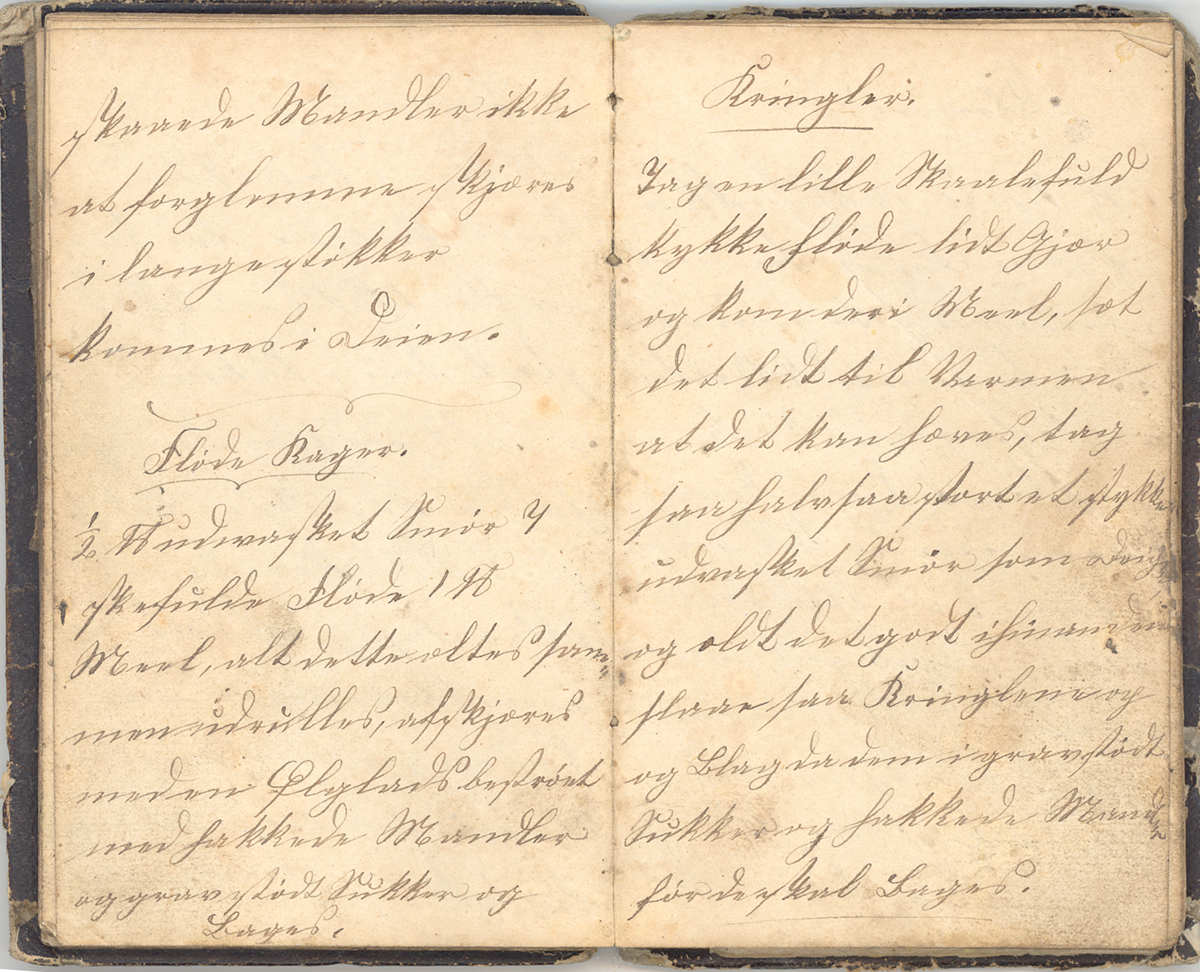 skaaede Mandler ikke
at forglemme skjæres
i lange stökker
kommes i Deien.
Flöde Kager.
½ ℔ udvasket Smör 7
skefulde Flöde 1 ℔
Meel, alt dette æltes sam=
men udrulles, afskjæres
med en Ølglads beströet
med hakkede Mandler
og grav stödt Sukker og
Bages.
Kringler.
Tag en lille Skaalefuld
tykke Flöde lidt Gjær
og kom deri Meel, sæt
det lidt til Varmen
at det kan hæves, tag
saa halv saa stort et stykke
udvasket Smör som Deigen
og ældt det godt ihinanden
slaae saa Kringlene og
og Blag da dem i grav stödt
Sukker og hakkede Mandler
för de skal Bages.